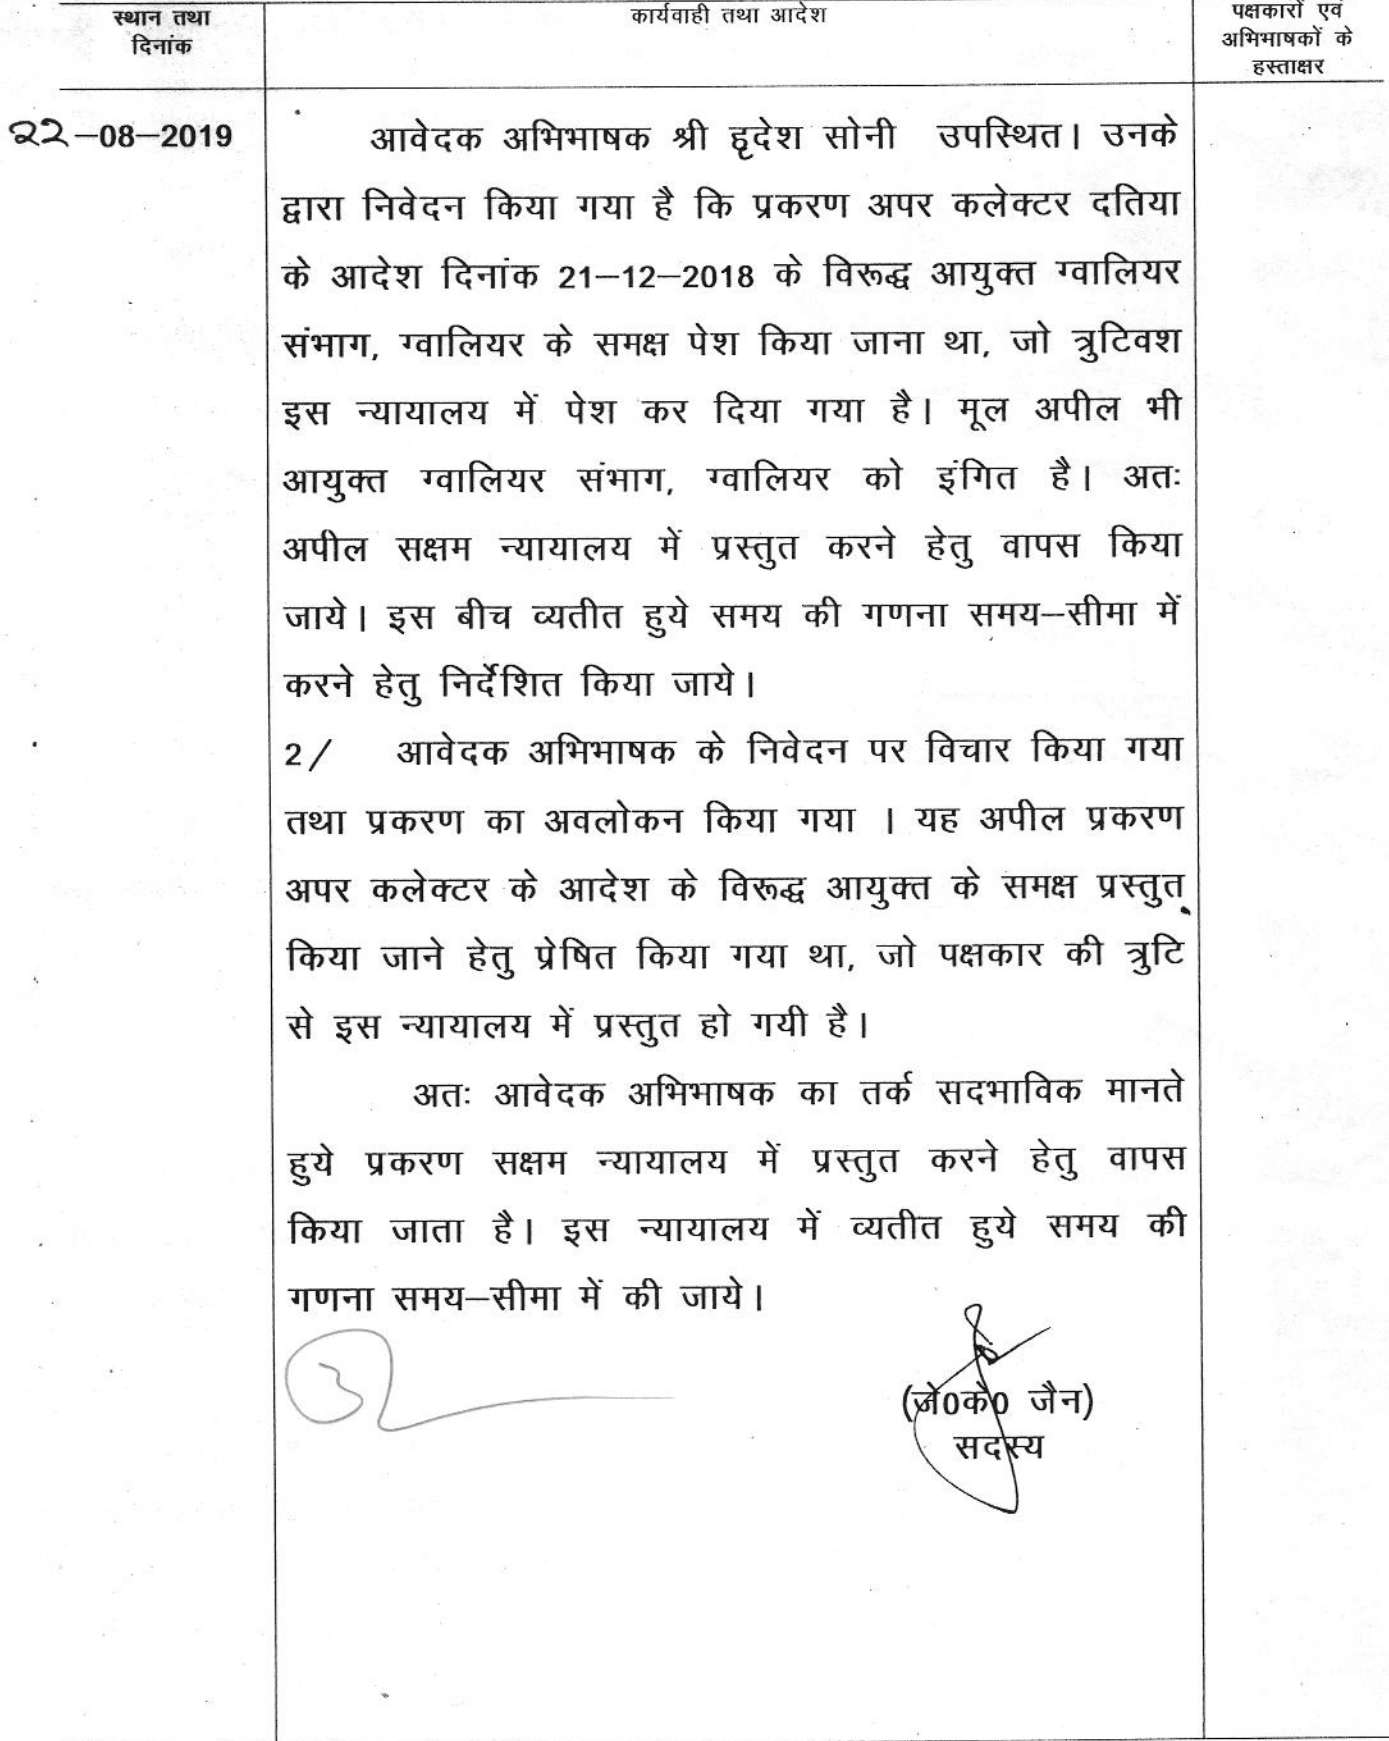 स्थान तथा
दिनांक
कार्यवाही तथा आदेश
पक्षकारों एवं
अभिभाषकों के
हस्ताक्षर
22–08–2019
आवेदक अभिभाषक श्री हृदेश सोनी उपस्थित। उनके
द्वारा निवेदन किया गया है कि प्रकरण अपर कलेक्टर दतिया
के आदेश दिनांक 21–12–2018 के विरूद्ध आयुक्त ग्वालियर
संभाग, ग्वालियर के समक्ष पेश किया जाना था, जो त्रुटिवश
इस न्यायालय में पेश कर दिया गया है। मूल अपील भी
आयुक्त ग्वालियर संभाग, ग्वालियर को इंगित है। अतः
अपील सक्षम न्यायालय में प्रस्तुत करने हेतु वापस किया
जाये। इस बीच व्यतीत हुये समय की गणना समय–सीमा में
करने हेतु निर्देशित किया जाये।
2/ आवेदक अभिभाषक के निवेदन पर विचार किया गया
तथा प्रकरण का अवलोकन किया गया । यह अपील प्रकरण
अपर कलेक्टर के आदेश के विरूद्ध आयुक्त के समक्ष प्रस्तुत
किया जाने हेतु प्रेषित किया गया था, जो पक्षकार की त्रुटि
से इस न्यायालय में प्रस्तुत हो गयी है।
अतः आवेदक अभिभाषक का तर्क सदभाविक मानते
हुये प्रकरण सक्षम न्यायालय में प्रस्तुत करने हेतु वापस
किया जाता है। इस न्यायालय में व्यतीत हुये समय की
गणना समय–सीमा में की जाये।
(जे0के0 जैन)
सदस्य